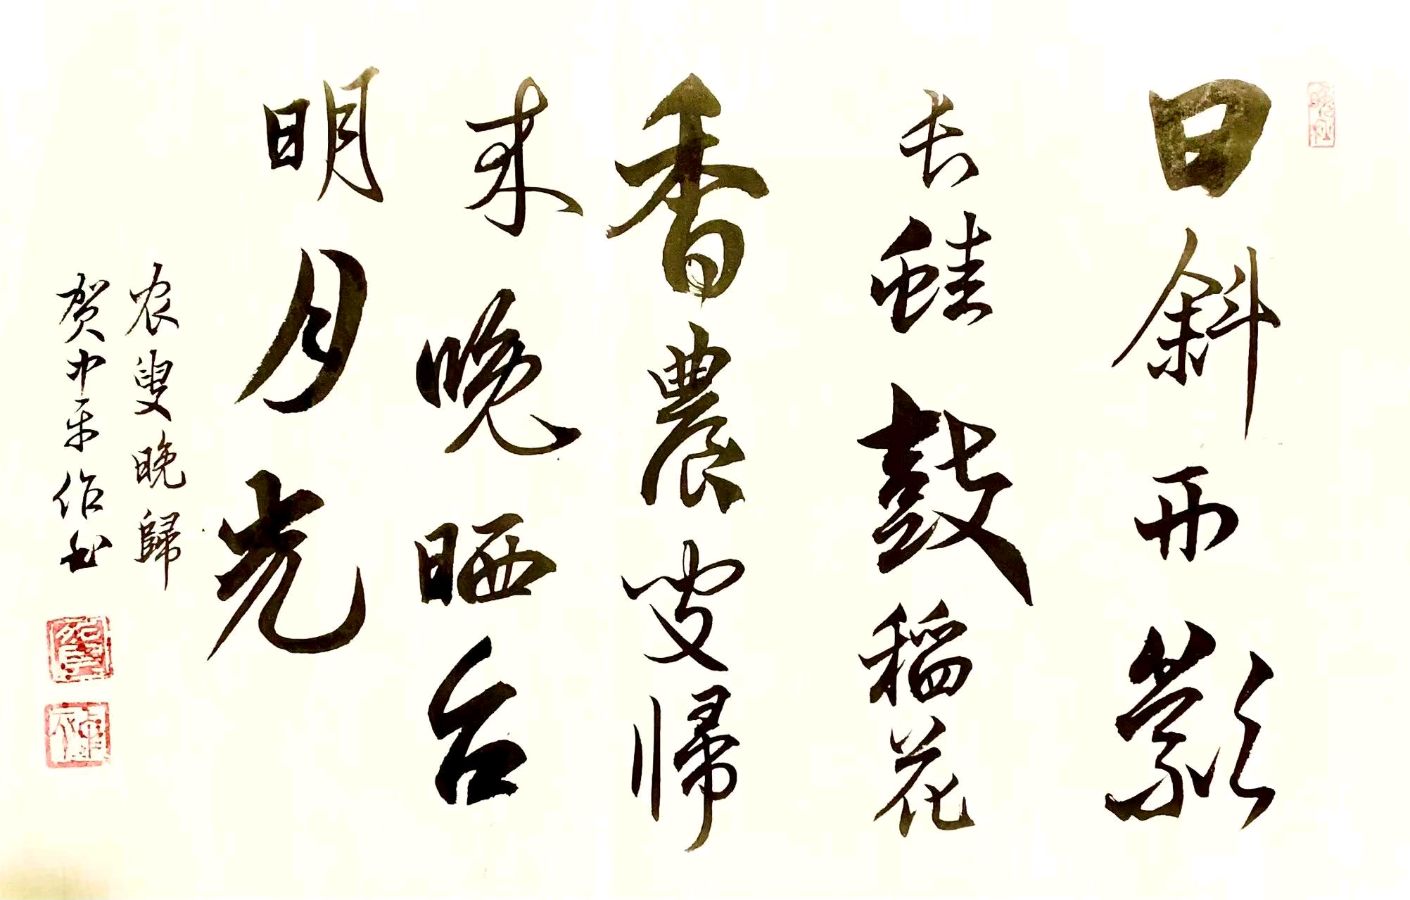 日斜影
长蛙鼓稻花
香農叟帰
来晚晒台
明月光
农叟晚歸
贺中平作书